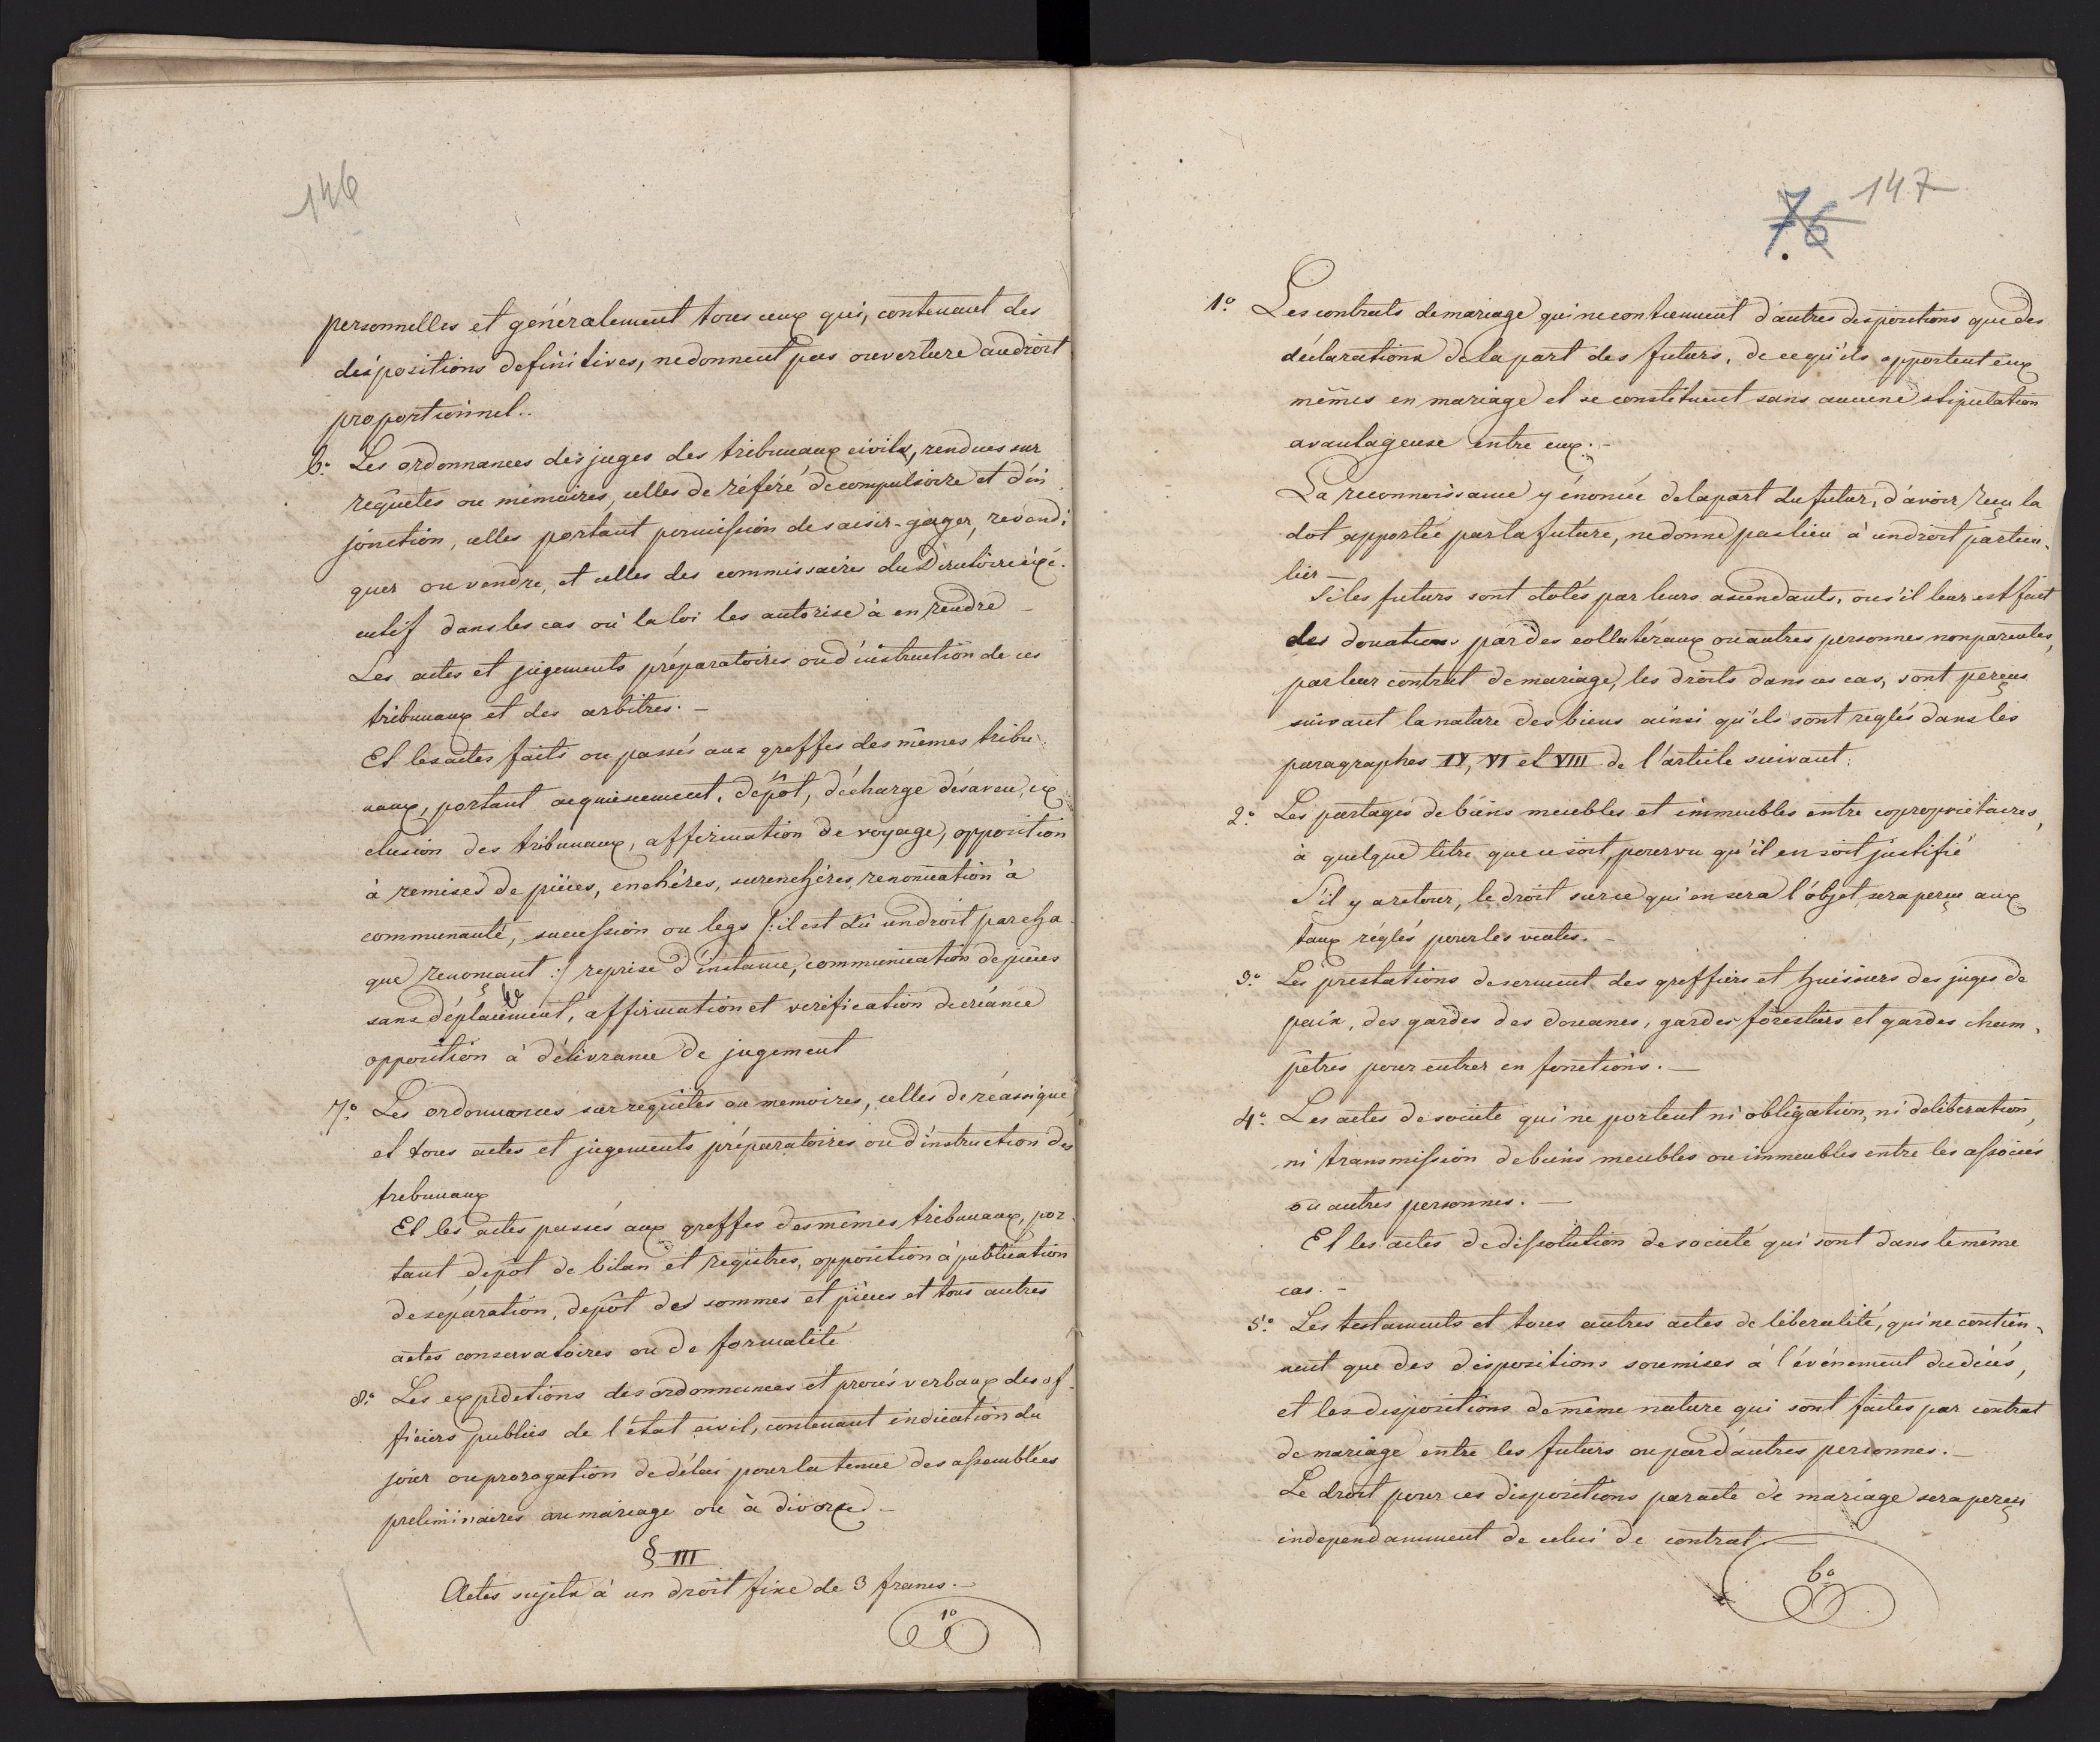 146
personnelles et généralement tous ceux qui, contenant des
dispositions definitives, ne donnent pas ouverture au droit
proportionnel..
6.° Les ordonnances des juges des tribunaux civils, rendues sur
requêtes ou mémoires, celles de référé de compulsoire et d'in
jonction, celles portant permission de saisir-gager, revendi
quer ou vendre, et celles des commissaires du Directoire éxé-
cutif dans les cas où la loi les autorise à en rendre –
Les actes et jugements préparatoires ou d'instruction de ces
tribunaux et des arbitres. –
Et les actes faits ou passés aux greffes des mêmes tribu-
naux, portant acquiescement, dépôt, décharge désaveu, ex
clusion des tribunaux, affirmation de voyage, opposition
à remises de pièces, enchéres, surenchéres, renonciation à
communauté, succession ou legs /: il est dû un droit par cha-
que renonçant :/ reprise d'instance, communication de pièces
sans déplacement, affirmation et verification de créance
opposition à délivrance de jugement
7.° Les ordonnances sur requêtes ou memoires, celles de réassigne,
et tous actes et jugements préparatoires ou d'instruction des
tribunaux
Et les actes passés aux greffes des mêmes tribunaux, por-
tant dépôt de bilan et registres, opposition à publication
de separation, depôt des sommes et pièces et tous autres
actes conservatoires ou de formalité
8.° Les expéditions des ordonnances et procés verbaux des of-
ficiers publics de l'état civil, contenant indication du
jour ou prorogation de délai pour la tenue des assemblées
preliminaires au mariage ou à divorce –
§ III
Actes sujets à un droit fixe de 3 francs. –
1°
147
76
1.° Les contrats de mariage qui ne contiennent d'autres dispositions que des
déclarations de la part des futurs, de ce qu'ils apportent eux
mêmes en mariage et se constituent sans aucune stipulation
avantageuse entre eux. –
La reconnoissance y énoncée de la part du futur, d'avoir reçu la
dot apportée par la future, ne donne pas lieu à un droit particu-
lier –
Si les futurs sont dotés par leurs ascendants, ou s'il leur est fait
des donations par des collatéraux ou autres personnes non parentes,
par leur contrat de mariage, les droits dans ces cas, sont perçus
suivant la nature des biens ainsi qu'ils sont reglés dans les
paragraphes IV, VI et VIII de l'article suivant.
2.° Les partages de biens meubles et immeubles entre copropriétaires,
à quelque titre que ce soit, pourvu qu'il en soit justifié
S'il y a retour, le droit sur ce qui en sera l'objet sera perçu aux
taux réglés pour les ventes. –
3.° Les prestations de serment des greffiers et huissiers des juges de
paix, des gardes des douanes, gardes forestiers et gardes cham-
pêtres pour entrer en fonctions. –
4.° Les actes de societe qui ne portent ni obligation, ni deliberation,
ni transmission de biens meubles ou immeubles entre les associés
ou autres personnes. –
Et les actes de dissolution de societé qui sont dans le même
cas. –
5.° Les testaments et tous autres actes de liberalité, qui ne contien-
nent que des dispositions soumises à l'événement du décés,
et les dispositions de même nature qui sont faites par contrat
de mariage entre les futurs ou par d'autres personnes. –
Le droit pour ces dispositions par acte de mariage sera perçu
independamment de celui de contrat. –
6°